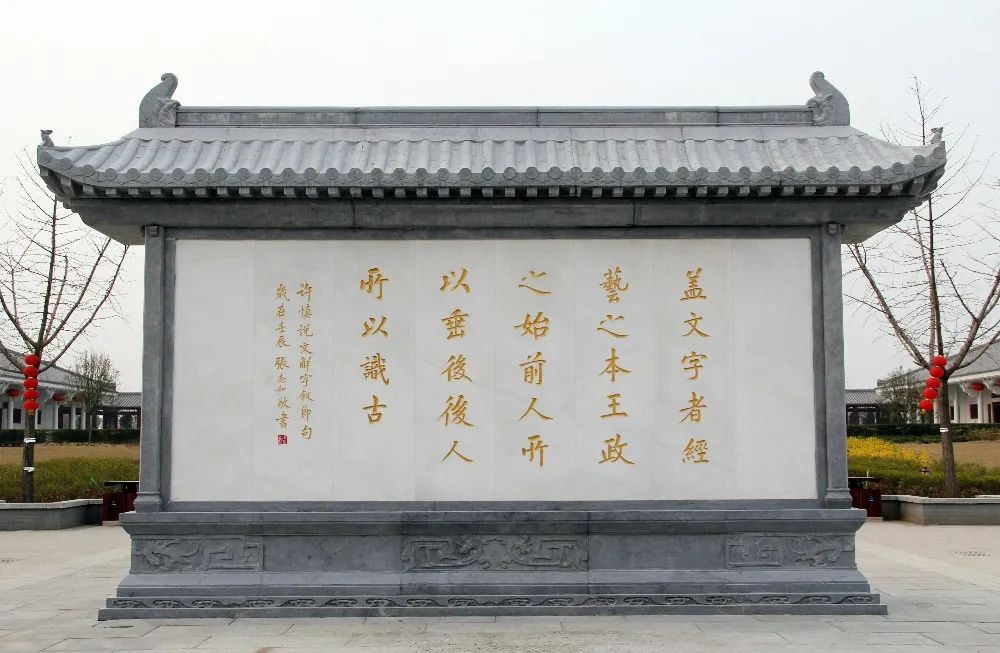 盖文字者經
藝之本王政
之始前人所
以垂後後人
所以識古
许慎说文解字叙節句
歲在壬辰 張志和敬書